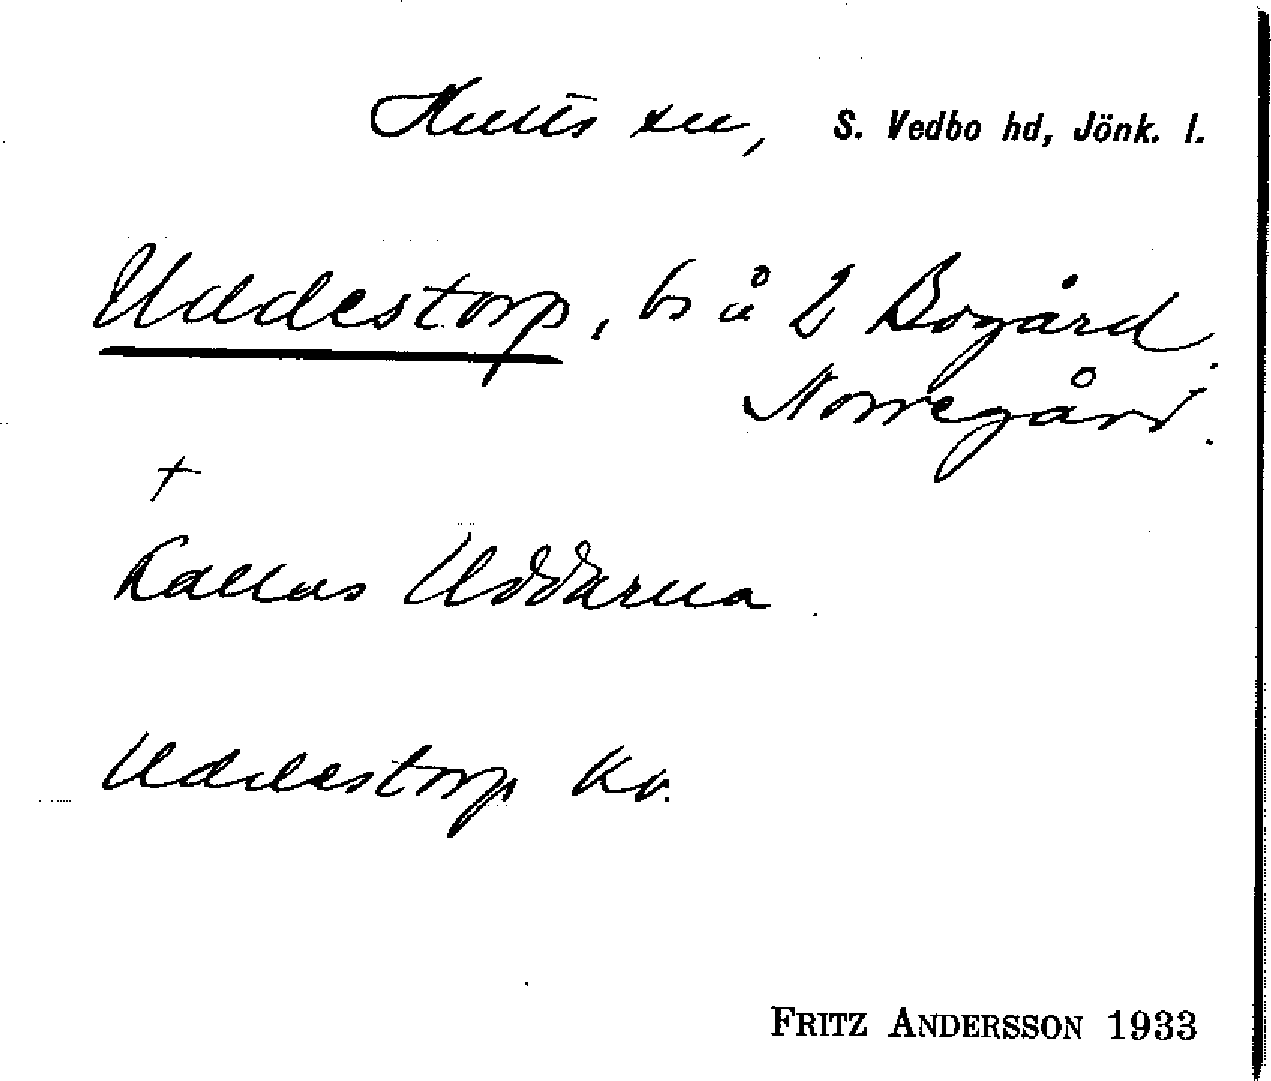 Hults sn, S. Vedbo hd, Jönk. l.
Uddestorp, by å 2 Bogård
Norregård.
+
Kallas Uddarna
Uddestorp kv.
FRITZ ANDERSSON 1933